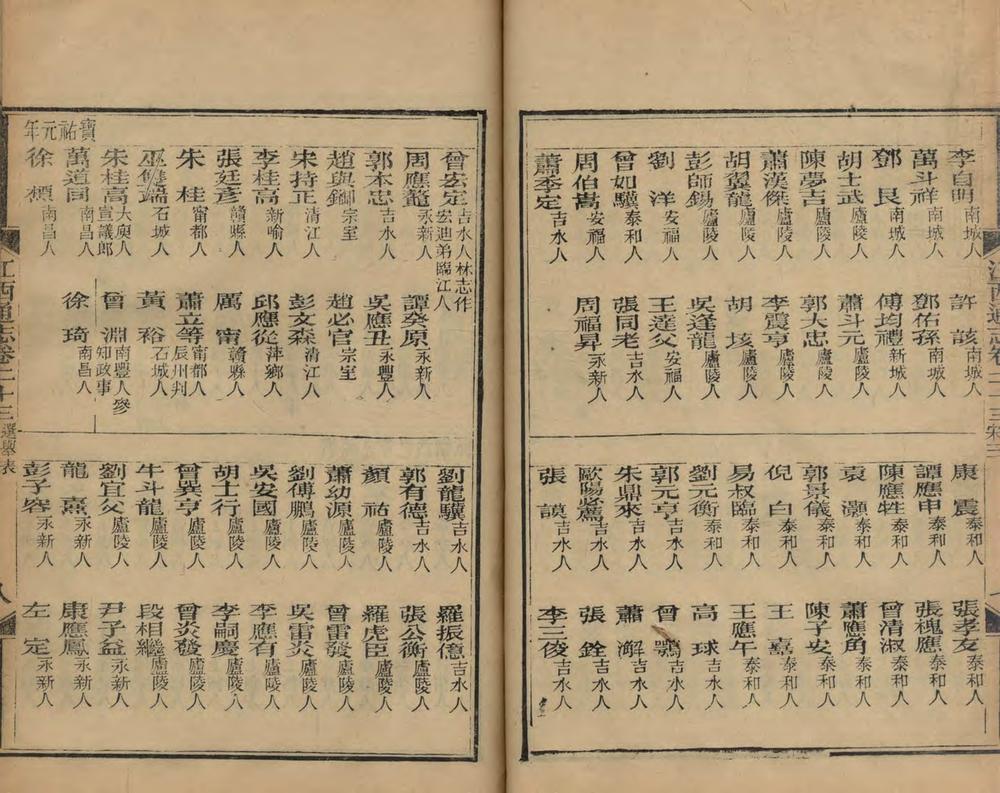 李自明南城人 許該南城人
萬斗祥南城人 鄧佑孫南城人
鄧艮南城人 傅均禮新城人
胡士武廬陵人 蕭斗元廬陵人
陳夢吉廬陵人 郭大忠廬陵人
蕭漢傑廬陵人 李震亨廬陵人
胡翼龍廬陵人 胡垓廬陵人
彭師錫廬陵人 吳逢龍廬陵人
劉洋安福人 王達父安福人
曾如驥泰和人 張同老吉水人
周伯嵩安福人 周福昇永新人
蕭季定吉水人
康震泰和人 張孝友泰和人
譚應申泰和人 張槐應泰和人
陳應牲泰和人 曾清淑泰和人
袁灝泰和人 蕭應角泰和人
郭景儀泰和人 陳子安泰和人
倪白泰和人 王嘉泰和人
易叔臨泰和人 王應午泰和人
劉元衡泰和人 高球吉水人
郭元亨吉水人 曾鶚吉水人
朱鼎來吉水人 蕭澥吉水人
歐陽必薦吉水人 張銓吉水人
張謨吉水人 李三俊吉水人
江西通志卷二十三
曾宏定吉水人林志作宏迪弟臨江人
周應鰲永新人 譚癸原永新人
郭本忠吉水人 吳應丑永豐人
趙與𨮁宗室 趙必官宗室
宋持正清江人 彭文森清江人
李桂高新喻人 邱應從萍鄉人
張廷彥贛縣人 厲甯贛縣人
朱桂甯都人 蕭立等甯都人辰州判
巫雙瑞石城人 黃裕石城人
朱桂高大庾人宣議郎 曾淵南豐人參知政事
萬道同南昌人 徐琦南昌人
寶祐元年
徐標南昌人
劉龍驥吉水人 羅振億吉水人
郭有德吉水人 張公衡廬陵人
顏祐廬陵人 羅虎臣廬陵人
蕭幼源廬陵人 曾雷發廬陵人
劉傅鵬廬陵人 吳雷炎廬陵人
吳安國廬陵人 李應有廬陵人
胡士行廬陵人 李嗣慶廬陵人
曾異亨廬陵人 曾炎發廬陵人
牛斗龍廬陵人 段相繼廬陵人
劉宜父廬陵人 尹子益永新人
龍熹永新人 康應鳳永新人
彭子容永新人 左定永新人
江西通志卷二十三 選舉表 八